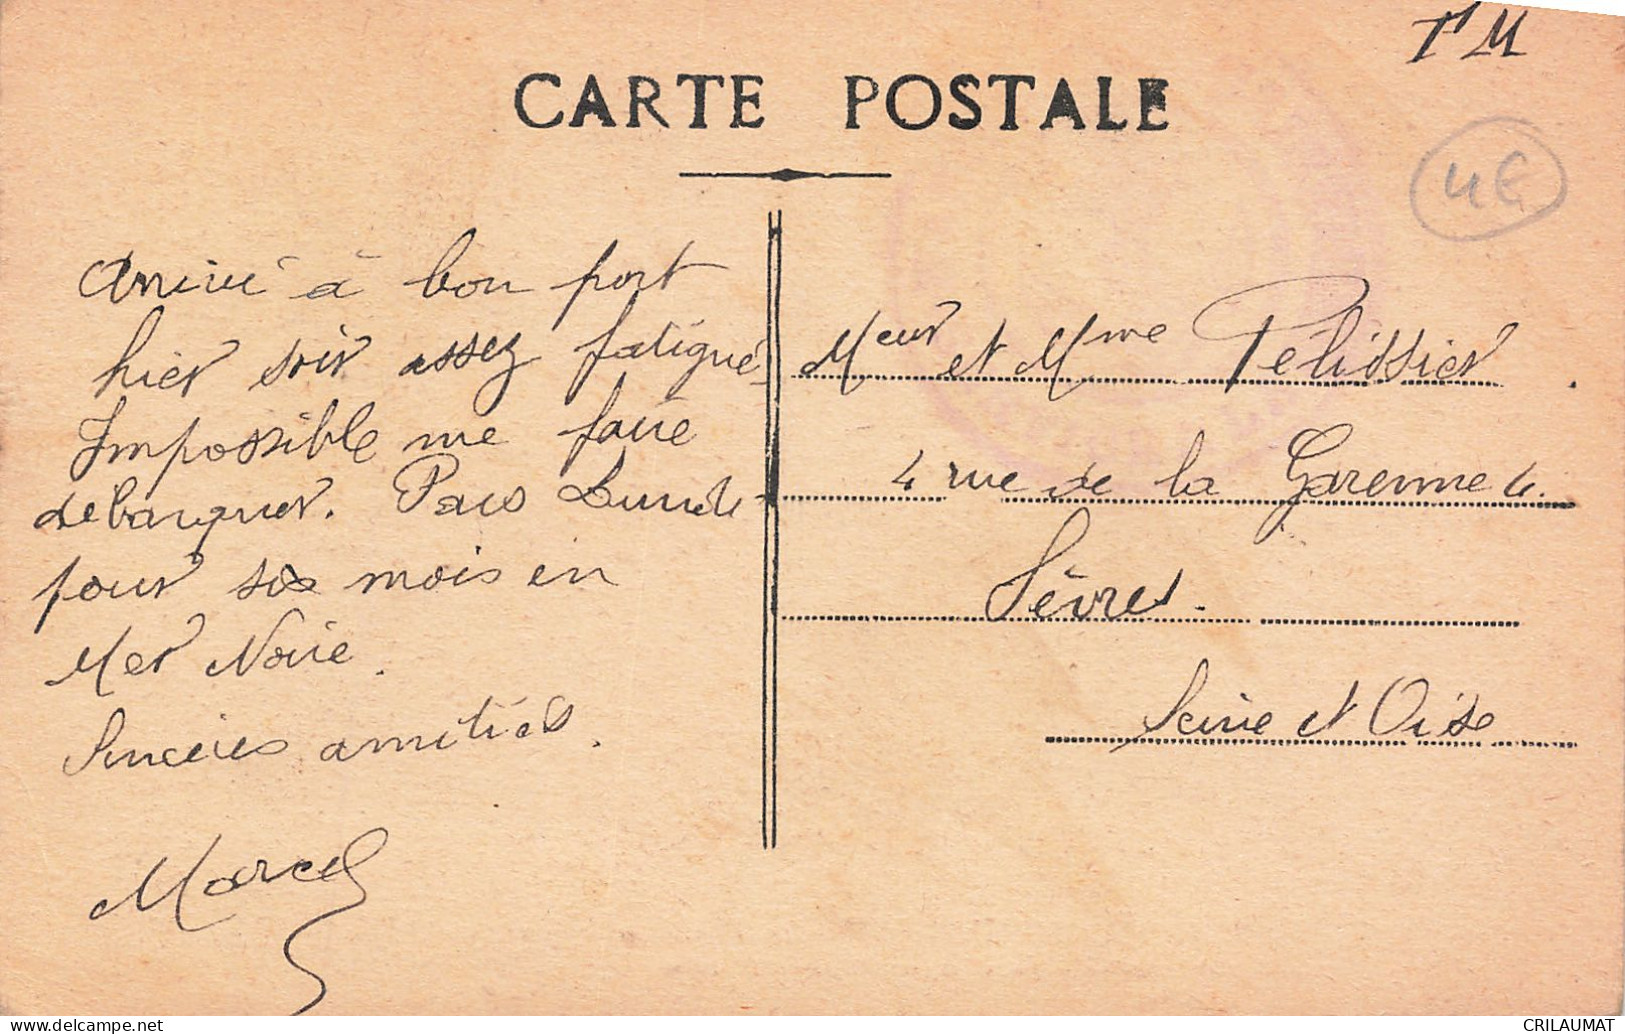 TM
CARTE POSTALE
4€
Arrivé à bon port
hier soir assez fatigué.
Impossible me faire
debarquer. Pars Lundi
pour six mois en
Mer Noire.
Sincères amitiés.
Marcel
Meur et Mme Pélissier.
4 rue de la Garenne 4.
Sèvres.
Seine et Oise
CRILAUMAT